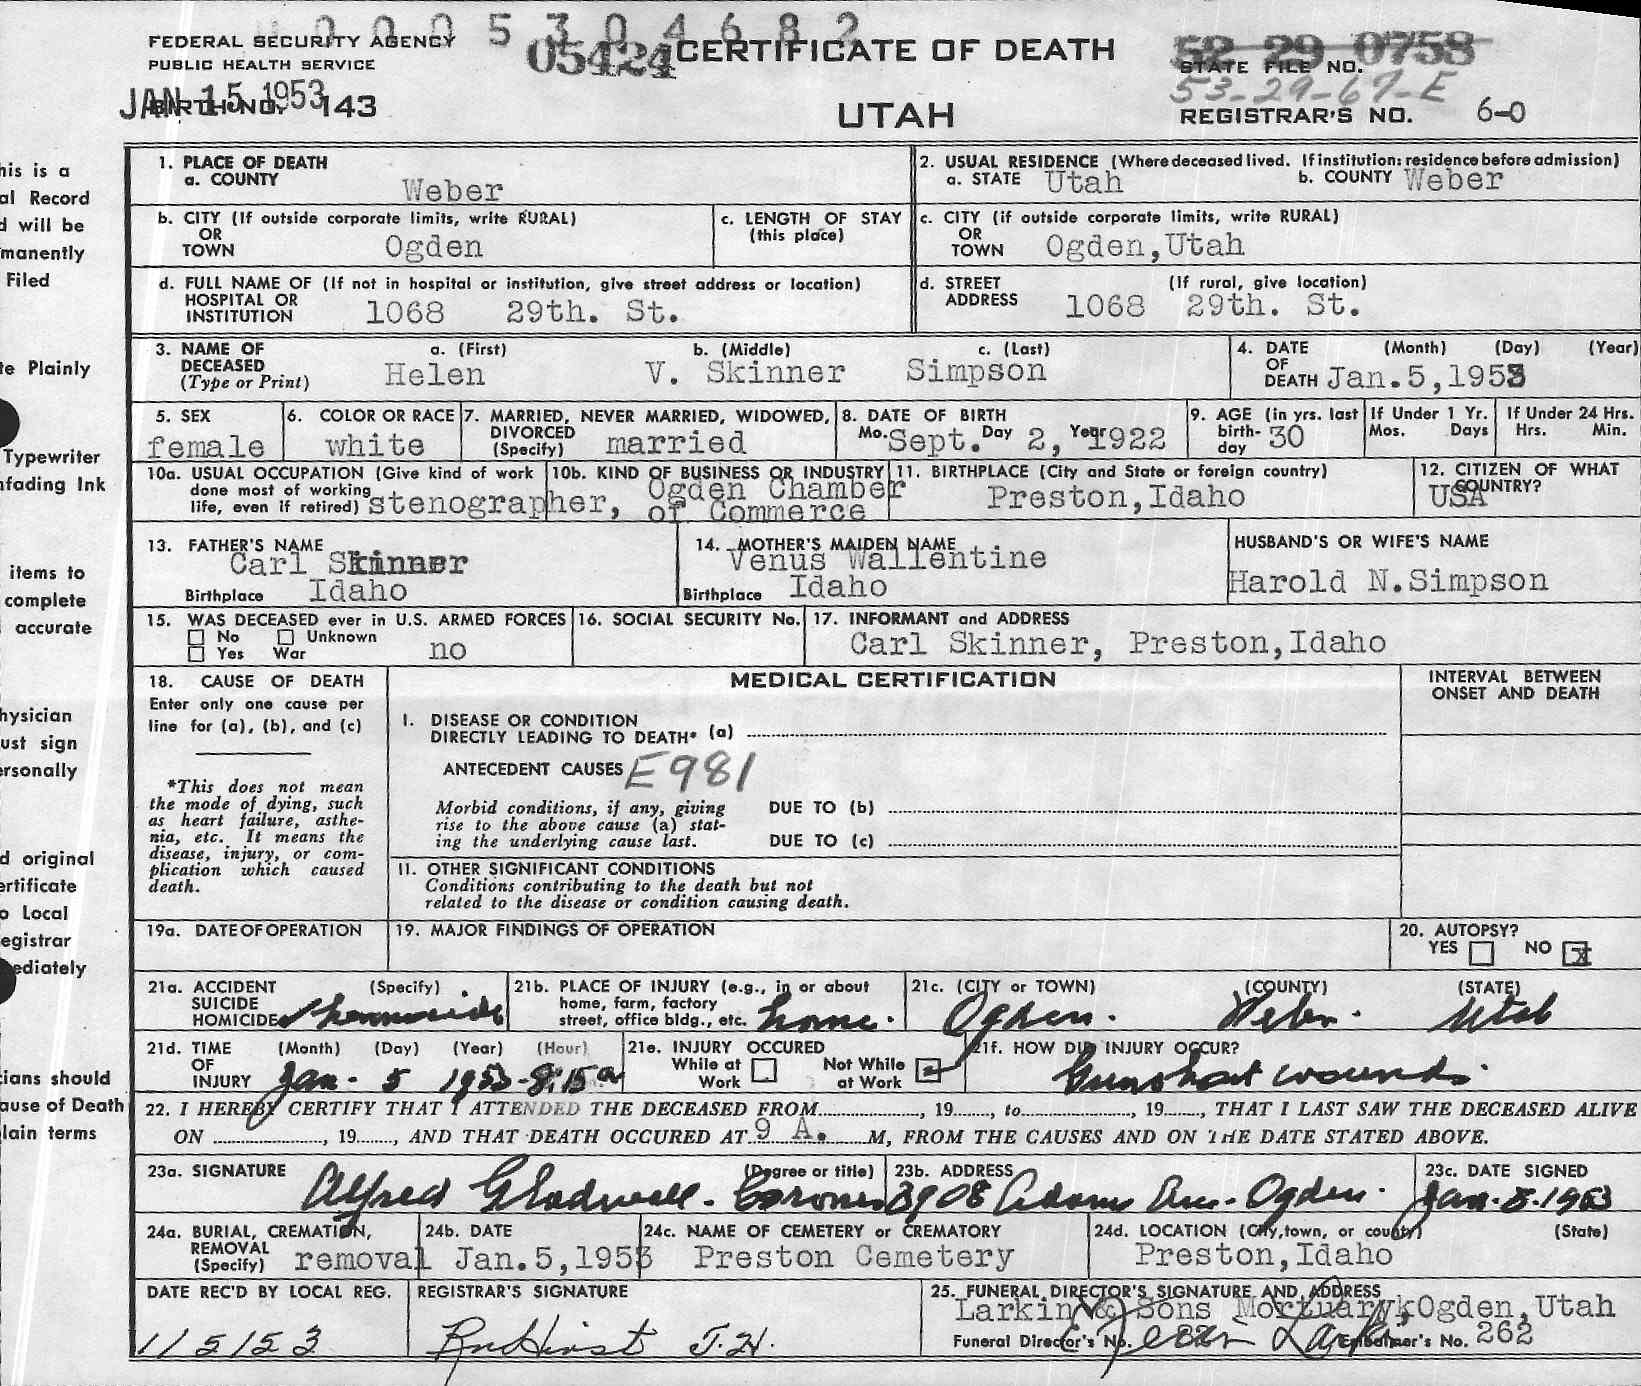 0 0 0 5 3 0 4 6 8 2
FEDERAL SECURITY AGENCY
PUBLIC HEALTH SERVICE
05424
CERTIFICATE OF DEATH
52 29 0758
STATE FILE NO.
53-29-67-E
JAN 15 1953
BIRTH NO. 143
UTAH
REGISTRAR'S NO. 6-0
his is a
al Record
d will be
manently
Filed
te Plainly
Typewriter
nfading Ink
items to
complete
accurate
hysician
ust sign
ersonally
d original
ertificate
o Local
egistrar
ediately
cians should
ause of Death
lain terms
1. PLACE OF DEATH
a. COUNTY Weber
2. USUAL RESIDENCE (Where deceased lived. If institution: residence before admission)
a. STATE Utah b. COUNTY Weber
b. CITY (If outside corporate limits, write RURAL)
OR
TOWN Ogden
c. LENGTH OF STAY
(this place)
c. CITY (if outside corporate limits, write RURAL)
OR
TOWN Ogden,Utah
d. FULL NAME OF (If not in hospital or institution, give street address or location)
HOSPITAL OR
INSTITUTION 1068 29th. St.
d. STREET (If rural, give location)
ADDRESS 1068 29th. St.
3. NAME OF a. (First) b. (Middle) c. (Last)
DECEASED
(Type or Print) Helen V. Skinner Simpson
4. DATE (Month) (Day) (Year)
OF
DEATH Jan.5,1953
5. SEX
female
6. COLOR OR RACE
white
7. MARRIED, NEVER MARRIED, WIDOWED,
DIVORCED
(Specify) married
8. DATE OF BIRTH
Mo. Sept. Day 2, Year 1922
9. AGE (in yrs. last
birth-
day 30
If Under 1 Yr.
Mos. Days
If Under 24 Hrs.
Hrs. Min.
10a. USUAL OCCUPATION (Give kind of work
done most of working
life, even if retired) stenographer,
10b. KIND OF BUSINESS OR INDUSTRY
Ogden Chamber
of Commerce
11. BIRTHPLACE (City and State or foreign country)
Preston,Idaho
12. CITIZEN OF WHAT
COUNTRY?
USA
13. FATHER'S NAME
Carl Skinner
Birthplace Idaho
14. MOTHER'S MAIDEN NAME
Venus Wallentine
Birthplace Idaho
HUSBAND'S OR WIFE'S NAME
Harold N.Simpson
15. WAS DECEASED ever in U.S. ARMED FORCES
No Unknown
Yes War no
16. SOCIAL SECURITY No.
17. INFORMANT and ADDRESS
Carl Skinner, Preston,Idaho
18. CAUSE OF DEATH
Enter only one cause per
line for (a), (b), and (c)
*This does not mean
the mode of dying, such
as heart failure, asthe-
nia, etc. It means the
disease, injury, or com-
plication which caused
death.
MEDICAL CERTIFICATION
INTERVAL BETWEEN
ONSET AND DEATH
I. DISEASE OR CONDITION
DIRECTLY LEADING TO DEATH* (a)
ANTECEDENT CAUSES E981
Morbid conditions, if any, giving
rise to the above cause (a) stat-
ing the underlying cause last.
DUE TO (b)
DUE TO (c)
11. OTHER SIGNIFICANT CONDITIONS
Conditions contributing to the death but not
related to the disease or condition causing death.
19a. DATE OF OPERATION
19. MAJOR FINDINGS OF OPERATION
20. AUTOPSY?
YES NO x
21a. ACCIDENT (Specify)
SUICIDE
HOMICIDE homicide
21b. PLACE OF INJURY (e.g., in or about
home, farm, factory
street, office bldg., etc. home.
21c. (CITY or TOWN) (COUNTY) (STATE)
Ogden. Weber. Utah
21d. TIME (Month) (Day) (Year) (Hour)
OF
INJURY Jan- 5 1953-8:15 am
21e. INJURY OCCURED
While at Not While
Work at Work
21f. HOW DID INJURY OCCUR?
Gunshot wounds.
22. I HEREBY CERTIFY THAT I ATTENDED THE DECEASED FROM, 19, to, 19, THAT I LAST SAW THE DECEASED ALIVE
ON, 19, AND THAT DEATH OCCURED AT 9 A. M, FROM THE CAUSES AND ON THE DATE STATED ABOVE.
23a. SIGNATURE (Degree or title)
Alfred Gladwell. Coroner
23b. ADDRESS
3908 Adams Ave. Ogden.
23c. DATE SIGNED
Jan. 8. 1953
24a. BURIAL, CREMATION,
REMOVAL
(Specify) removal
24b. DATE
Jan.5,1953
24c. NAME OF CEMETERY or CREMATORY
Preston Cemetery
24d. LOCATION (City, town, or county) (State)
Preston,Idaho
DATE REC'D BY LOCAL REG.
1/5/53
REGISTRAR'S SIGNATURE
J.H.
25. FUNERAL DIRECTOR'S SIGNATURE AND ADDRESS
Larkin & Sons Mortuary, Ogden,Utah
Funeral Director's No. Embalmer's No. 262